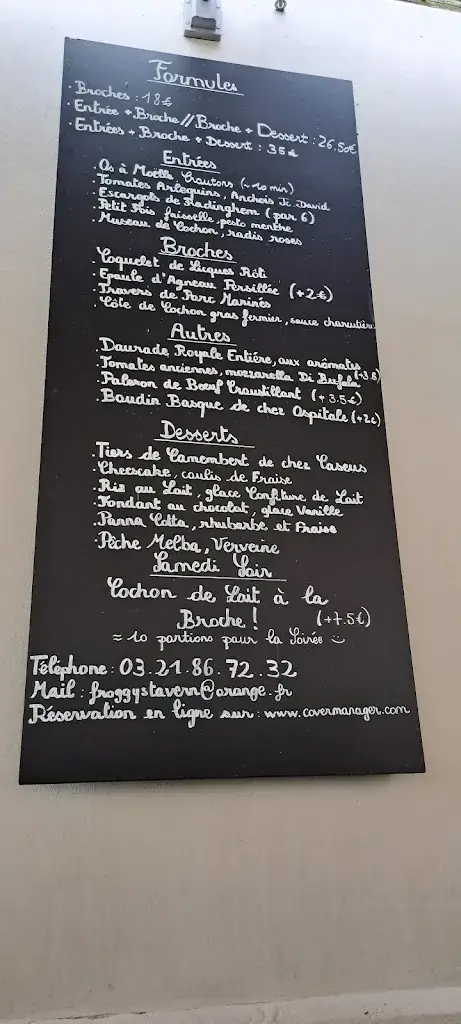 Formules
• Broches : 18€
• Entrée + Broche // Broche + Dessert : 26.50€
• Entrées + Broche + Dessert : 35€
Entrées
• Os à Moëlle Croutons (~10 min)
• Tomates Arlequins, Anchois Jc. David
• Escargots de Radinghem (par 6)
• Petit Pois faisselle, pesto menthe
• Museau de Cochon, radis roses
Broches
• Coquelet de Licques Rôti
• Epaule d'Agneau Persillée (+2€)
• Travers de Porc Marinés
• Côte de Cochon gras fermier, sauce charcutière
Autres
• Daurade Royale Entière, aux arômates
• Tomates anciennes, mozzarella Di Bufala (+3€)
• Paleron de Bœuf Croustillant (+3.5€)
• Boudin Basque de chez Ospitale (+2€)
Desserts
• Tiers de Camembert de chez Caseus
• Cheescake, coulis de Fraise
• Riz au Lait, glace Confiture de Lait
• Fondant au chocolat, glace Vanille
• Panna Cotta, rhubarbe et Fraise
• Pêche Melba, Verveine
Samedi Soir
Cochon de Lait à la
Broche ! (+7.5€)
≈ 10 portions pour la Soirée
Téléphone : 03.21.86.72.32
Mail : froggystavern@orange.fr
Réservation en ligne sur : www.covermanager.com